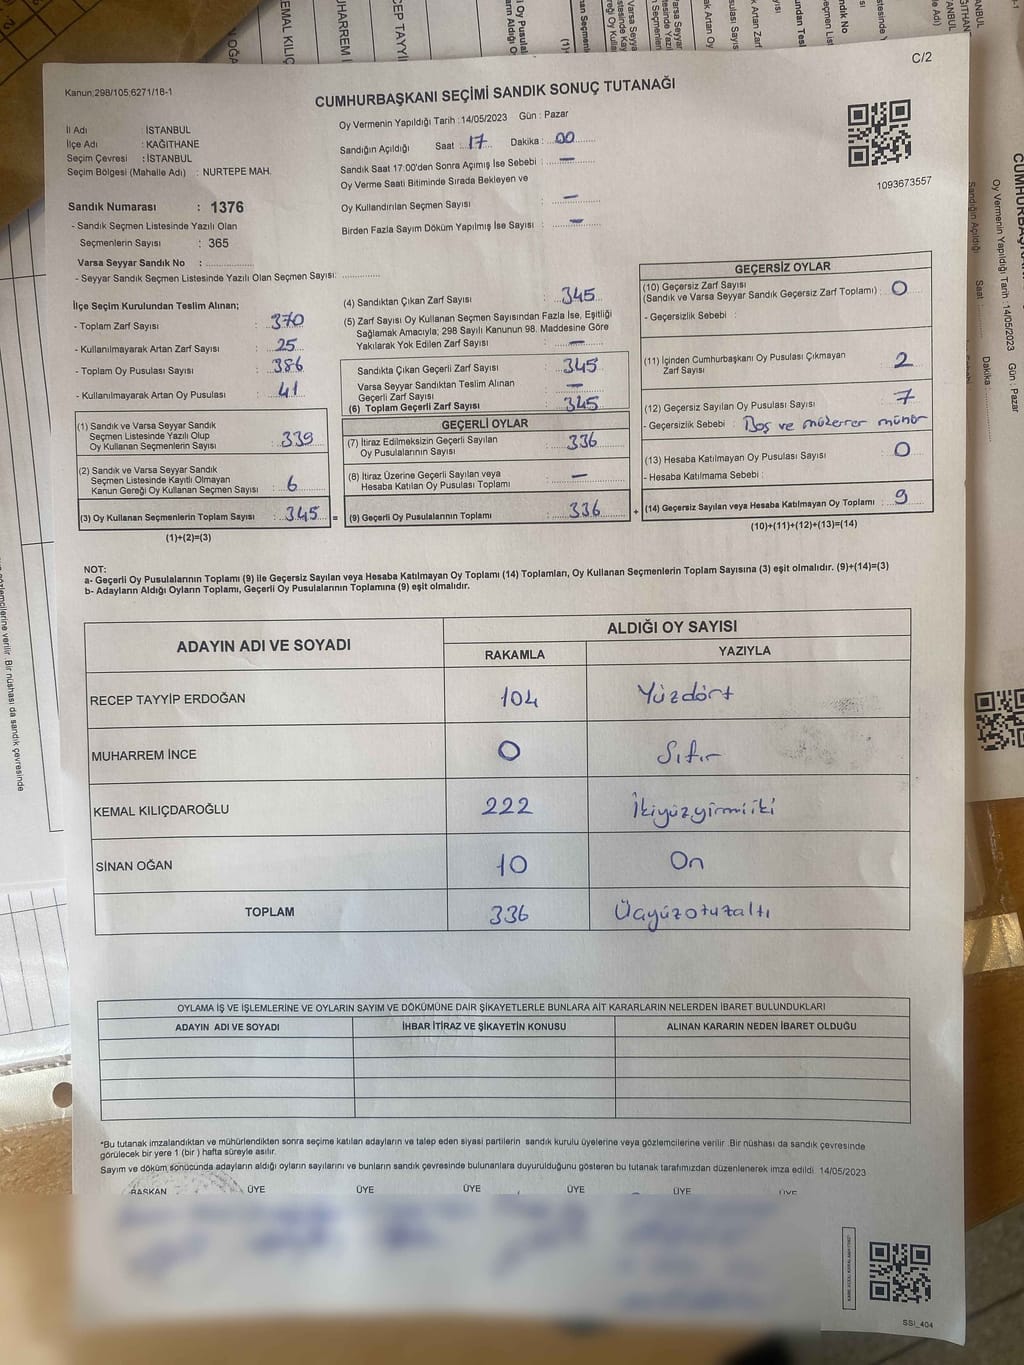 C/2
Kanun:298/105;6271/18-1
CUMHURBAŞKANI SEÇİMİ SANDIK SONUÇ TUTANAĞI
İl Adı : İSTANBUL
İlçe Adı : KAĞITHANE
Seçim Çevresi : İSTANBUL
Seçim Bölgesi (Mahalle Adı) : NURTEPE MAH.
Sandık Numarası : 1376
- Sandık Seçmen Listesinde Yazılı Olan
Seçmenlerin Sayısı : 365
Varsa Seyyar Sandık No :
- Seyyar Sandık Seçmen Listesinde Yazılı Olan Seçmen Sayısı:
Oy Vermenin Yapıldığı Tarih : 14/05/2023 Gün : Pazar
Sandığın Açıldığı Saat : 17 Dakika : 00
Sandık Saat 17:00'den Sonra Açımış İse Sebebi : —
Oy Verme Saati Bitiminde Sırada Bekleyen ve
Oy Kullandırılan Seçmen Sayısı : —
Birden Fazla Sayım Döküm Yapılmış İse Sayısı : —
1093673557
İlçe Seçim Kurulundan Teslim Alınan;
- Toplam Zarf Sayısı : 370
- Kullanılmayarak Artan Zarf Sayısı : 25
- Toplam Oy Pusulası Sayısı : 386
- Kullanılmayarak Artan Oy Pusulası : 41
(1) Sandık ve Varsa Seyyar Sandık
Seçmen Listesinde Yazılı Olup
Oy Kullanan Seçmenlerin Sayısı : 339
(2) Sandık ve Varsa Seyyar Sandık
Seçmen Listesinde Kayıtlı Olmayan
Kanun Gereği Oy Kullanan Seçmen Sayısı : 6
(3) Oy Kullanan Seçmenlerin Toplam Sayısı : 345
(1)+(2)=(3)
(4) Sandıktan Çıkan Zarf Sayısı : 345
(5) Zarf Sayısı Oy Kullanan Seçmen Sayısından Fazla İse, Eşitliği
Sağlamak Amacıyla; 298 Sayılı Kanunun 98. Maddesine Göre
Yakılarak Yok Edilen Zarf Sayısı : —
Sandıkta Çıkan Geçerli Zarf Sayısı : 345
Varsa Seyyar Sandıktan Teslim Alınan
Geçerli Zarf Sayısı : —
(6) Toplam Geçerli Zarf Sayısı : 345
GEÇERLİ OYLAR
(7) İtiraz Edilmeksizin Geçerli Sayılan
Oy Pusulalarının Sayısı : 336
(8) İtiraz Üzerine Geçerli Sayılan veya
Hesaba Katılan Oy Pusulası Toplamı : —
= (9) Geçerli Oy Pusulalarının Toplamı : 336 +
GEÇERSİZ OYLAR
(10) Geçersiz Zarf Sayısı
(Sandık ve Varsa Seyyar Sandık Geçersiz Zarf Toplamı) : 0
- Geçersizlik Sebebi :
(11) İçinden Cumhurbaşkanı Oy Pusulası Çıkmayan
Zarf Sayısı : 2
(12) Geçersiz Sayılan Oy Pusulası Sayısı : 7
- Geçersizlik Sebebi : Boş ve mükerrer mühür
(13) Hesaba Katılmayan Oy Pusulası Sayısı : 0
- Hesaba Katılmama Sebebi :
(14) Geçersiz Sayılan veya Hesaba Katılmayan Oy Toplamı : 9
(10)+(11)+(12)+(13)=(14)
NOT:
a- Geçerli Oy Pusulalarının Toplamı (9) ile Geçersiz Sayılan veya Hesaba Katılmayan Oy Toplamı (14) Toplamları, Oy Kullanan Seçmenlerin Toplam Sayısına (3) eşit olmalıdır. (9)+(14)=(3)
b- Adayların Aldığı Oyların Toplamı, Geçerli Oy Pusulalarının Toplamına (9) eşit olmalıdır.
ADAYIN ADI VE SOYADI ALDIĞI OY SAYISI
RAKAMLA YAZIYLA
RECEP TAYYİP ERDOĞAN 104 Yüzdört
MUHARREM İNCE 0 Sıfır
KEMAL KILIÇDAROĞLU 222 İkiyüzyirmiiki
SİNAN OĞAN 10 On
TOPLAM 336 Üçyüzotuzaltı
OYLAMA İŞ VE İŞLEMLERİNE VE OYLARIN SAYIM VE DÖKÜMÜNE DAİR ŞİKAYETLERLE BUNLARA AİT KARARLARIN NELERDEN İBARET BULUNDUKLARI
ADAYIN ADI VE SOYADI İHBAR İTİRAZ VE ŞİKAYETİN KONUSU ALINAN KARARIN NEDEN İBARET OLDUĞU
*Bu tutanak imzalandıktan ve mühürlendikten sonra seçime katılan adayların ve talep eden siyasi partilerin sandık kurulu üyelerine veya gözlemcilerine verilir. Bir nüshası da sandık çevresinde
görülecek bir yere 1 (bir ) hafta süreyle asılır.
Sayım ve döküm sonucunda adayların aldığı oyların sayılarını ve bunların sandık çevresinde bulunanlara duyurulduğunu gösteren bu tutanak tarafımızdan düzenlenerek imza edildi. 14/05/2023
BAŞKAN ÜYE ÜYE ÜYE ÜYE ÜYE ÜYE
SSI_404